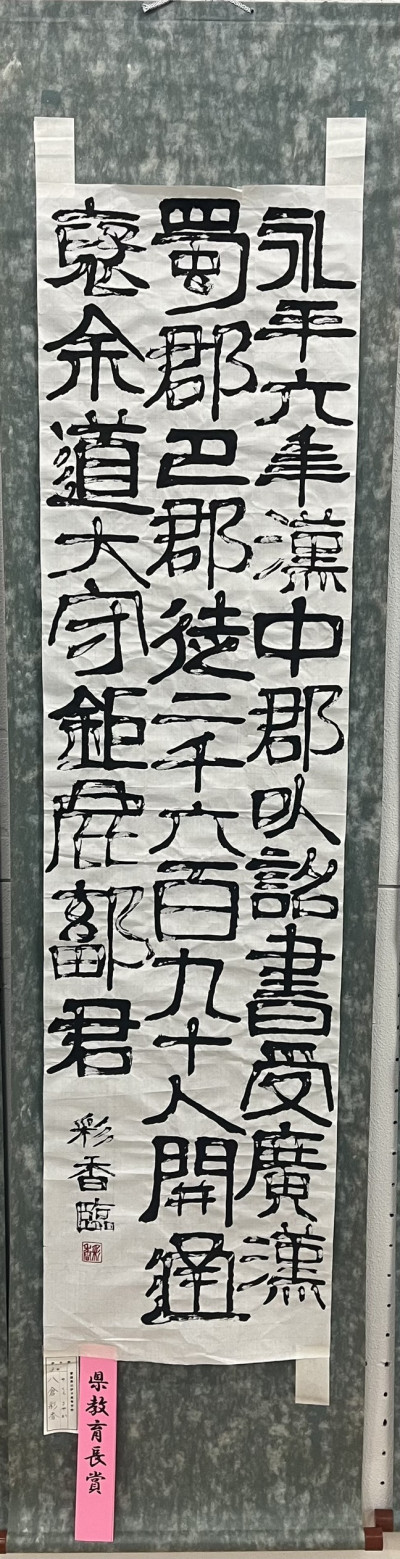 永平六年漢中郡以詔書受廣漢
蜀郡巴郡徒二千六百九十人開通
褒余道太守鉅鹿鄐君
彩香臨
県教育長賞